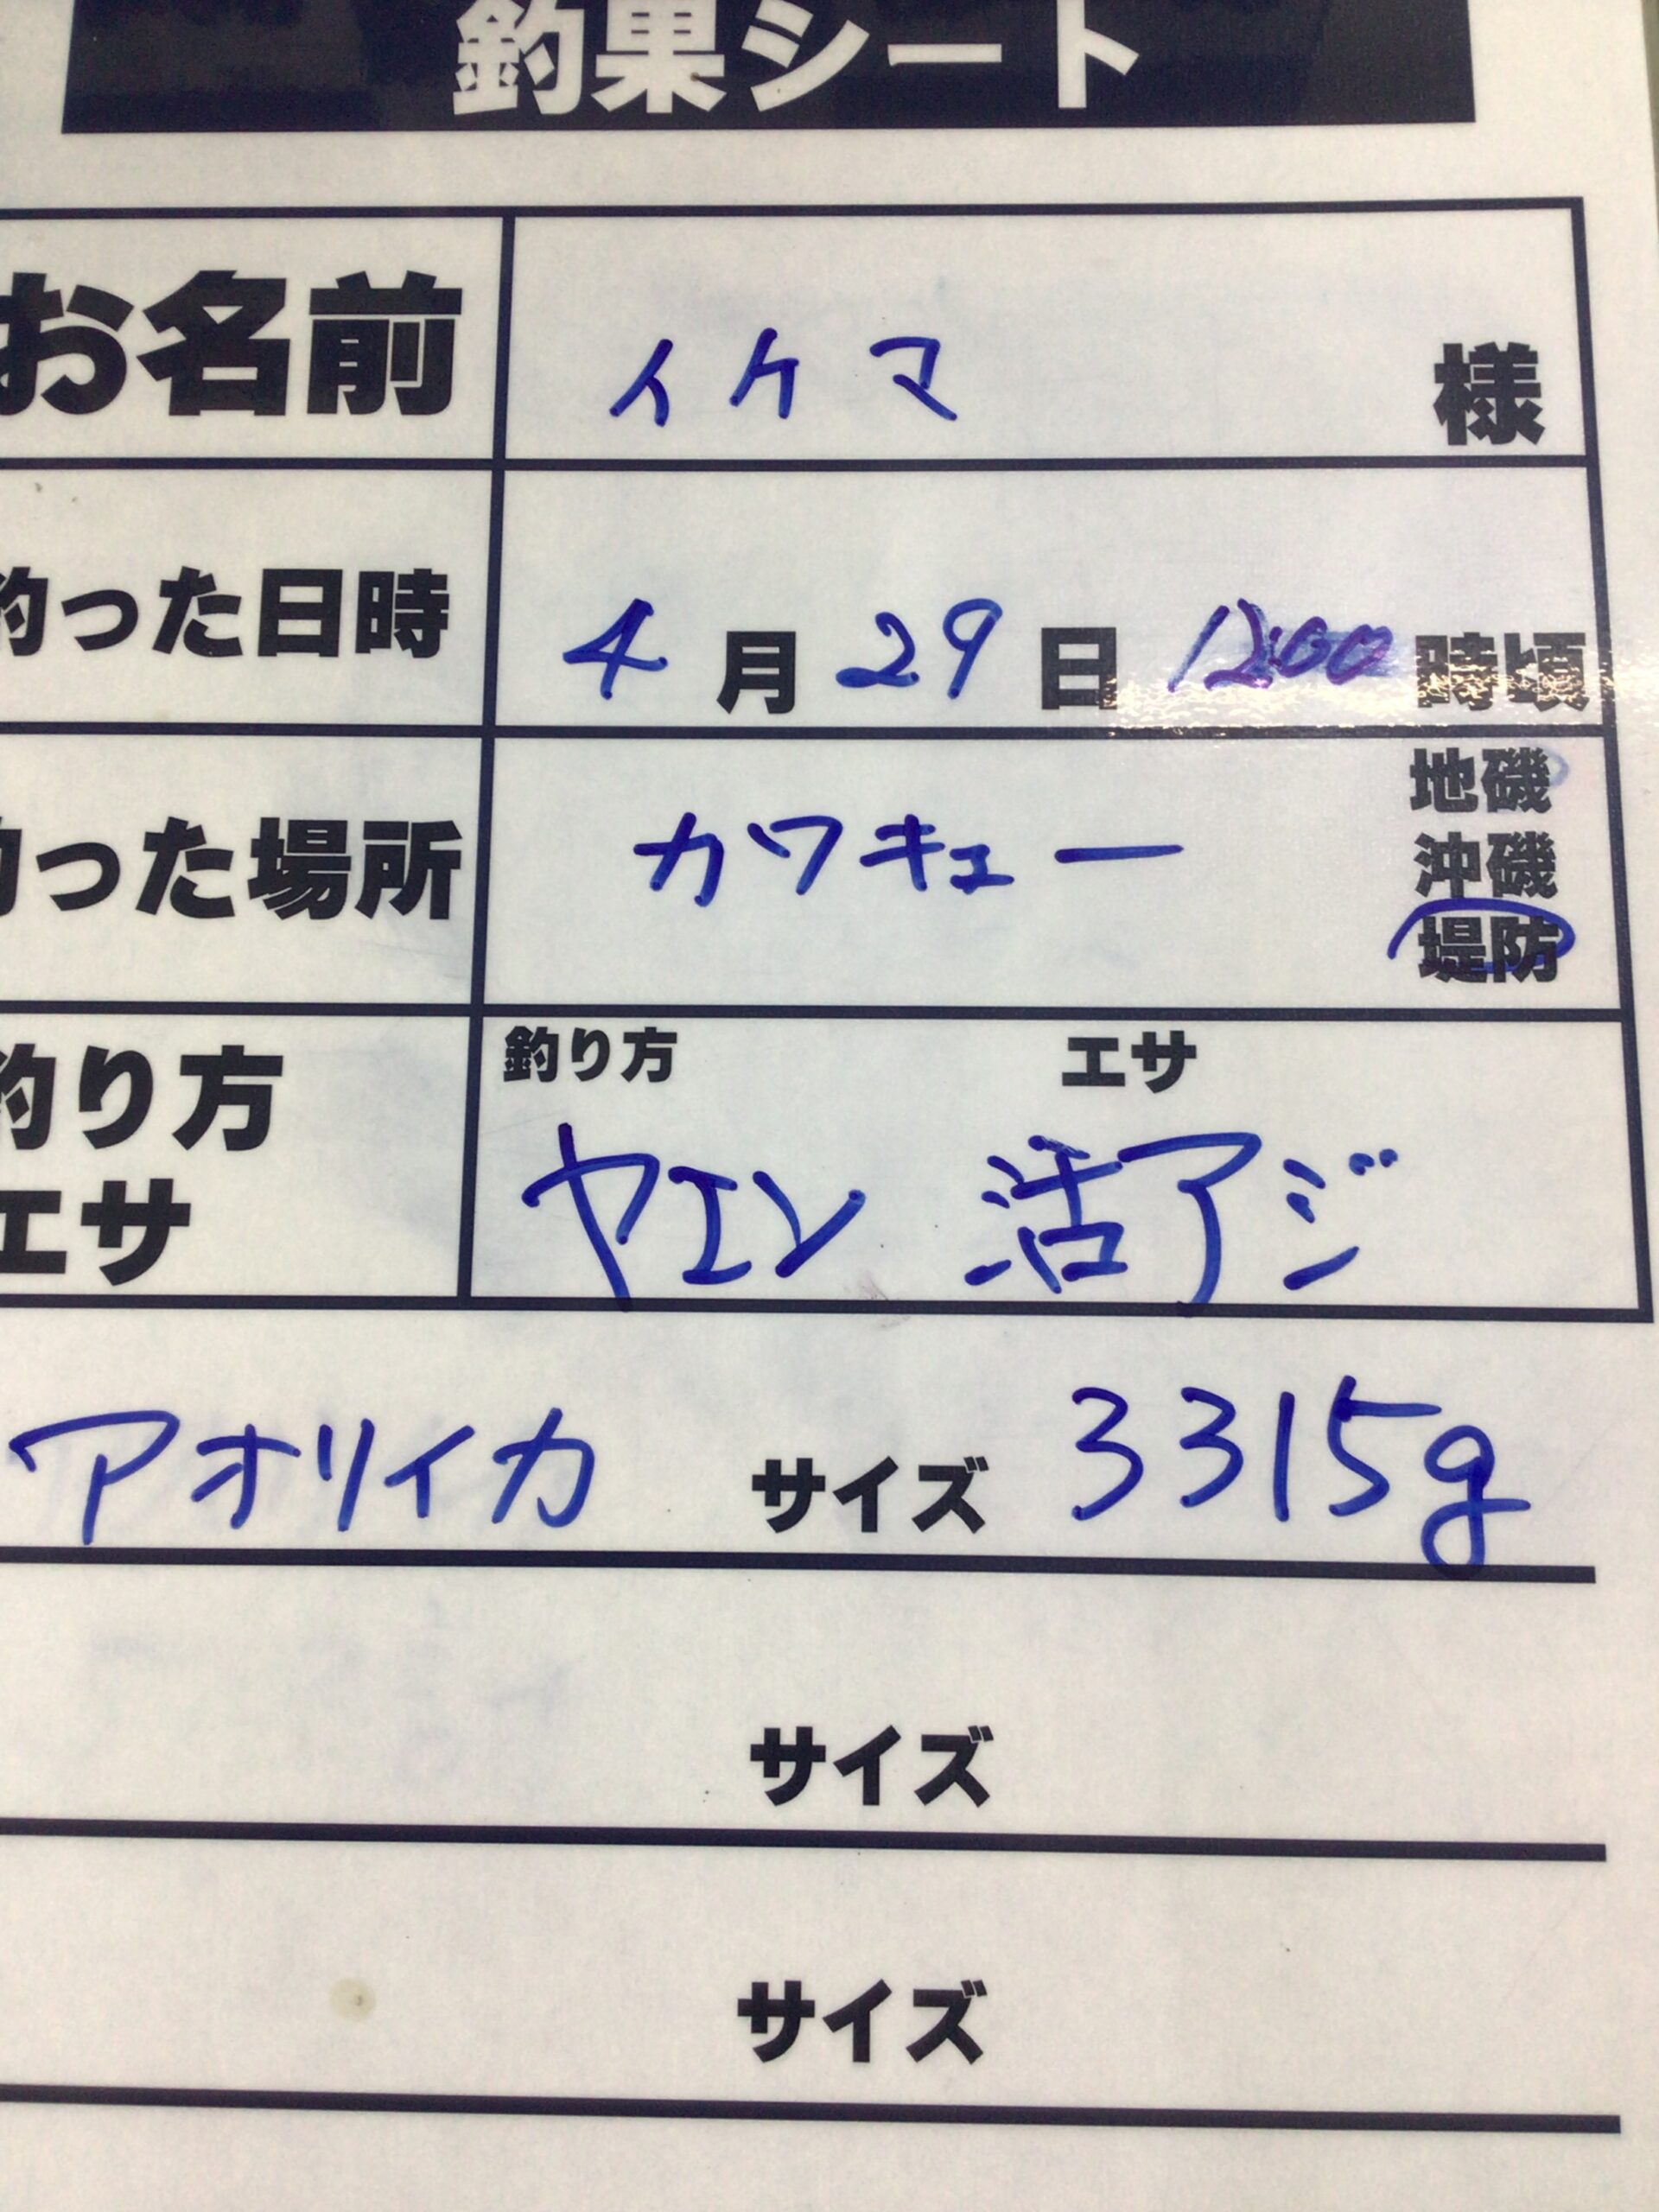 釣果シート
お名前 イケマ 様
釣った日時 4月29日 12:00時頃
地磯
釣った場所 カワキュー 沖磯
堤防
釣り方 釣り方 エサ
エサ ヤエン 活アジ
アオリイカ サイズ 3315g
サイズ
サイズ